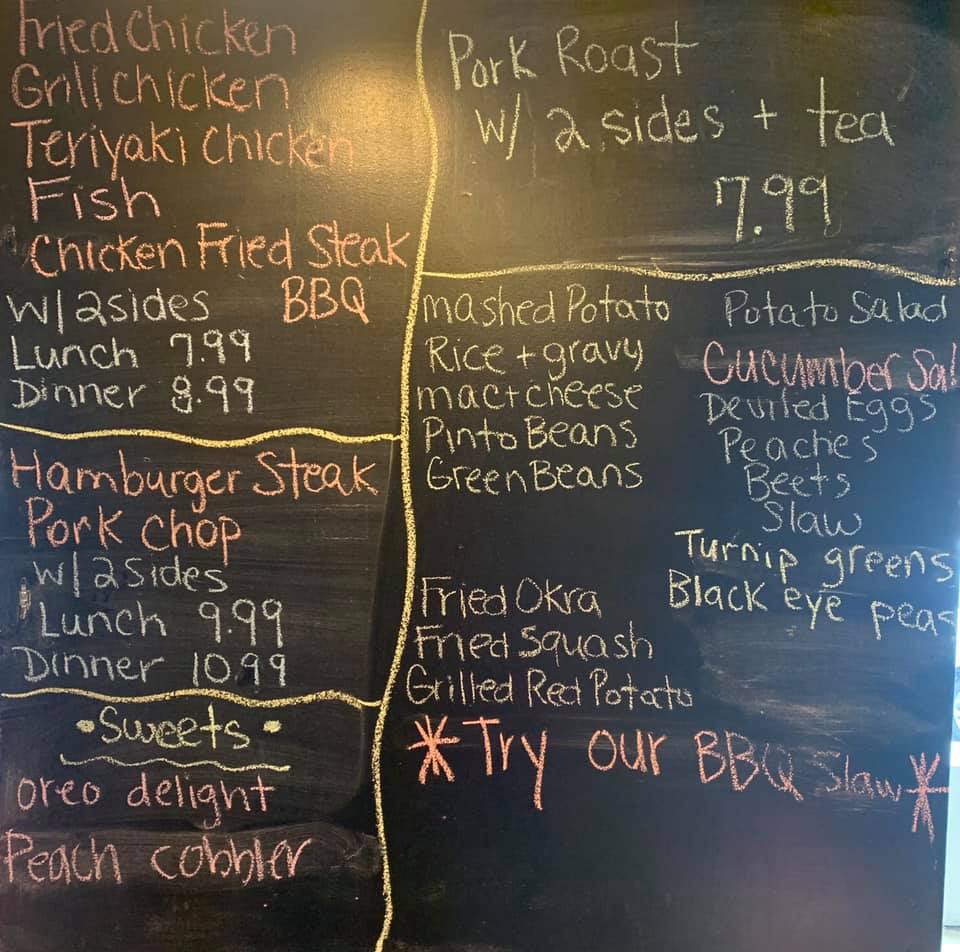 Fried Chicken
Grill chicken
Teriyaki chicken
Fish
Chicken Fried Steak
BBQ
w/ 2 sides
Lunch 7.99
Dinner 8.99
Hamburger Steak
Pork Chop
w/ 2 Sides
Lunch 9.99
Dinner 10.99
•Sweets•
oreo delight
Peach cobbler
Pork Roast
w/ 2 sides + tea
7.99
mashed Potato
Rice + gravy
mac + cheese
Pinto Beans
Green Beans
Fried Okra
Fried Squash
Grilled Red Potato
Potato Salad
Cucumber Sal
Deviled Eggs
Peaches
Beets
Slaw
Turnip greens
Black eye peas
*Try our BBQ Slaw*